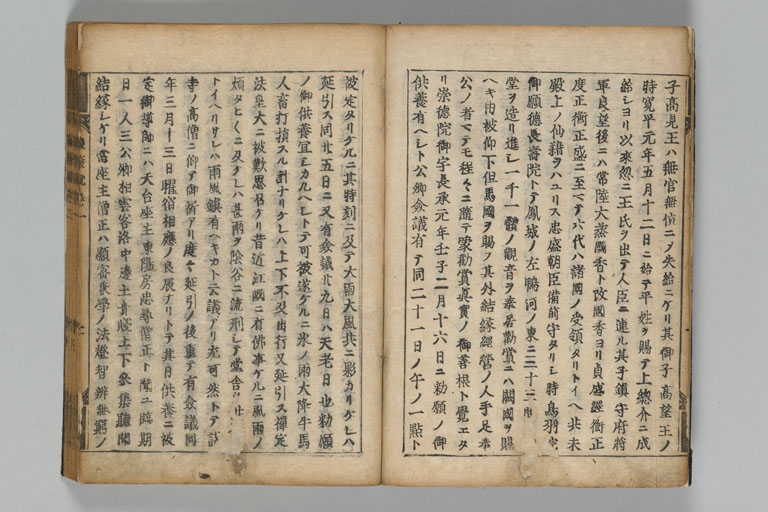 子高見王ハ無官無位ニノ失給ニケリ其御子高望王ノ
時寛平元年五月十二日ニ始テ平姓ヲ賜テ上總介ニ成
給シヨリ以來忽ニ王氏ヲ出テ人臣ニ連ル其子鎮守府將
軍良望後ニハ常陸大𫟒國香ト改國香ヨリ貞盛經衡正
度正衡正盛ニ至マテ六代ハ諸國ノ受領タリトイヘ共未
殿上ノ仙籍ヲハユリス忠盛朝臣備前守タリシ時鳥羽
御願德長壽院トテ鳳城ノ左鴨河ノ東ニ三十三
堂ヲ造リ進シ一千一體ノ觀音ヲ奉居勸賞ニハ闕國ヲ賜
ヘキ由被仰下但馬國ヲ賜フ其外結緣經營ノ人手足奉
公ノ者マテモ程々ニ隨テ蒙勸賞眞實ノ御善根ト覺エタ
リ崇德院御宇長承元年壬子二月十六日ニ勅願ノ御
供養有ヘシト公卿僉議有テ同二十一日ノ午ノ一點ト
被定タリケルニ其時刻ニ及テ大雨大風共ニ夥カリケレハ
延引ス同廿五日ニ又有僉議廿九日ハ天老日也勅願
ノ御供養宜シカルヘシトテ可被遂ケルニ氷ノ雨大降牛馬
人畜打損スル計ナリケレハ上下不及出行又延引ス禪定
法皇大ニ被歎思召ケリ昔近江國ニ有佛事ケルニ風雨ノ
煩タヒ〱ニ及ケレハ甚雨ヲ陰谷ニ流刑シテ堂舍ヲ
トイヘリサレハ雨風鎮有ヘキカト云議アリ尤可然トテ諸
寺ノ高僧ニ仰テ御祈アリ度々延引ノ後重テ有僉議同
年三月十三日曜宿相應ノ良辰ナリトテ其日供養ニ被
定御導師ニハ天台座主東陽房忠尋僧正ト聞ユ臨期
日一人三公卿相雲客洛中邊土貴賤上下參集聽聞
結緣シケリ當座主僧正ハ顯密兼學ノ法燈智辨無窮ノ